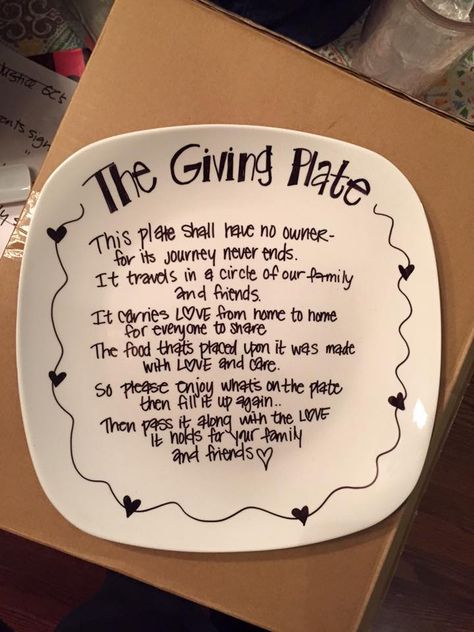 The Giving Plate
This plate shall have no owner-
for its journey never ends.
It travels in a circle of our family
and friends.
It carries LOVE from home to home
for everyone to share
The food thats placed upon it was made
with LOVE and care.
So please enjoy what's on the plate
then fill it up again..
Then pass it along with the LOVE
It holds for your family
and friends♡